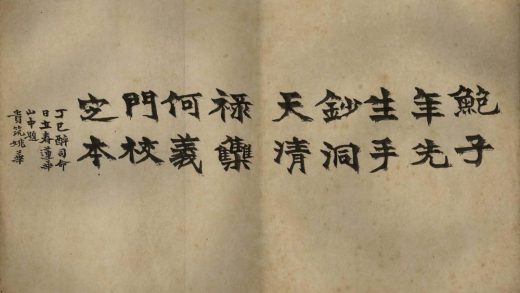 鮑子
年先
生手
鈔洞
天清
祿雧
何義
門校
㝎本
丁巳醉司命
日立春蓮華
山中題
貴筑姚華